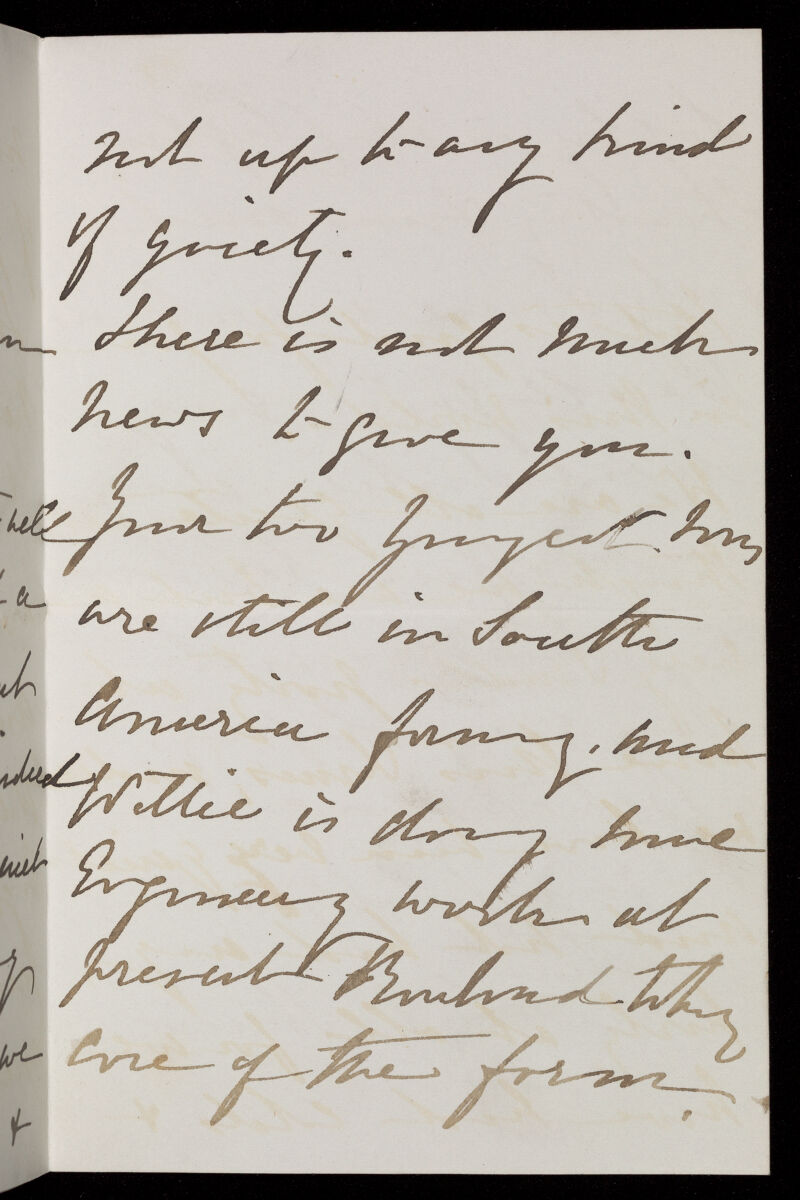 not up to any kind
of gaiety.
There is not much
news to give you.
Your two youngest sons
are still in South
America farming, and
Willie is doing some
Engineering work at
present Rowland taking
care of the farm.
well
a
indeed
we
&